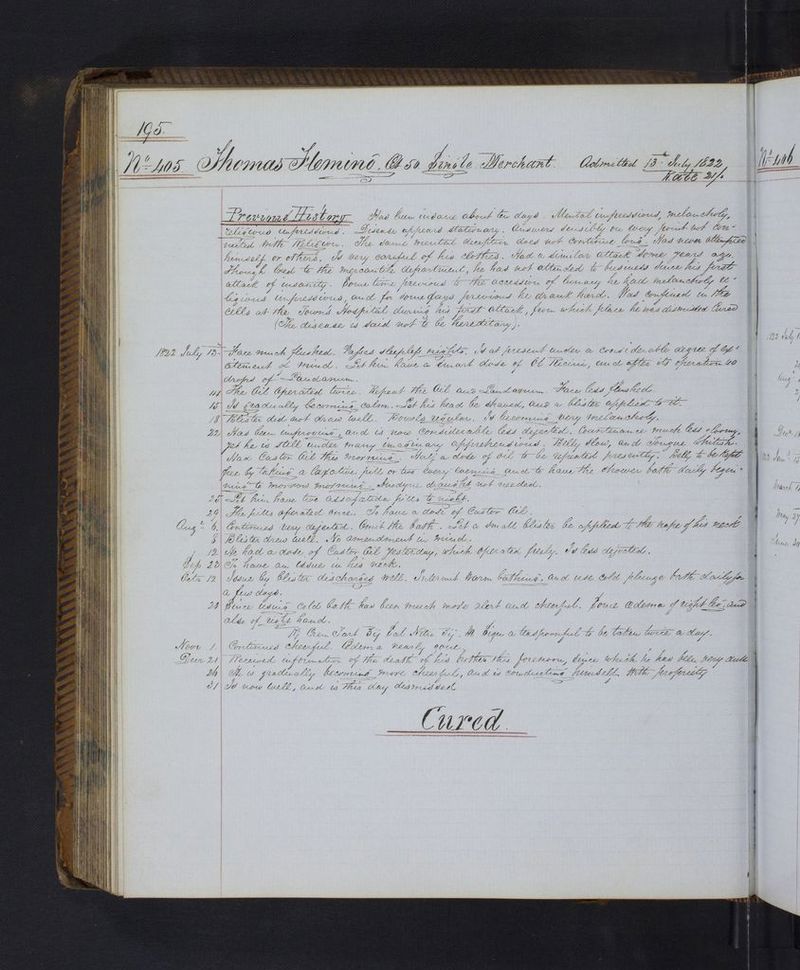 195.
No 405 Thomas Fleming, Æt 50 Single Merchant Admitted 13th July 1822,
Rate 21/.
Previous History Has been insane about ten days. Mental impressions, melancholy,
religious impressions. Disease appears stationary. Answers sensibly on every point not con-
nected with Religion. The same mental deception does not continue long. Has never attempted
himself or others. Is very careful of his clothes. Had a similar attack some years ago.
Though bred to the mercantile department, he has not attended to business since his first
attack of insanity. Some time previous to the accession of lunacy he had melancholy re-
ligious impressions, and for some days previous he drank hard. Was confined in the
cells at the Town's Hospital during his first attack, from which place he was dismissed Cured
(The disease is said not to be hereditary).
1822 July 13th Face much flushed. Passes sleepless nights. Is at present under a considerable degree of ex-
citement of mind. Let him have a smart dose of Ol Ricini, and after its operation 40
drops of Laudanum.
14 The Oil operated twice. Repeat the Oil and Laudanum. Face less flushed
15 Is gradually becoming calm. Let his head be shaved, and a blister applied to it
18 Blister did not draw well. Bowels regular. Is becoming very melancholy.
22 Has been improving, and is now considerable less dejected. Countenance much less
yet he is still under many imaginary apprehensions. Belly slow, and tongue whitish.
Had Castor Oil this morning. Half a dose of oil to be repeated presently. Belly to be kept
free by taking a laxative pill or two every evening and to have the shower bath daily begin-
ning to morrow morning. Anodyne draught not needed.
25 Let him have two assafœtida pills to night.
29 The pills operated once. To have a dose of Castor Oil.
Augt 6 Continues very dejected. Omit the bath. Let a small blister be applied to the nape of his neck
8 Blister drew well. No amendment in mind.
12 He had a dose of Castor Oil yesterday, which operated freely. Is less dejected.
Sep 20 To have an Issue in his neck.
Octr 12 Issue by blister discharges well. Intermit warm bathing, and use cold plunge bath daily for
a few days.
23 Since using cold bath has been much more alert and cheerful. Some œdema of right leg, and
also of right hand.
℞ Crem Tart ʒij Sal Nitri ʒij. M. Sign a teaspoonful to be taken twice a day.
Novr 1 Continues cheerful. Œdema nearly gone.
Decr 21 Received information of the death of his brother this forenoon, since which he has been very dull
26 He is gradually becoming more cheerful, and is conducting himself with propriety
31 Is now well, and is this day dismissed
Cured.
No 406